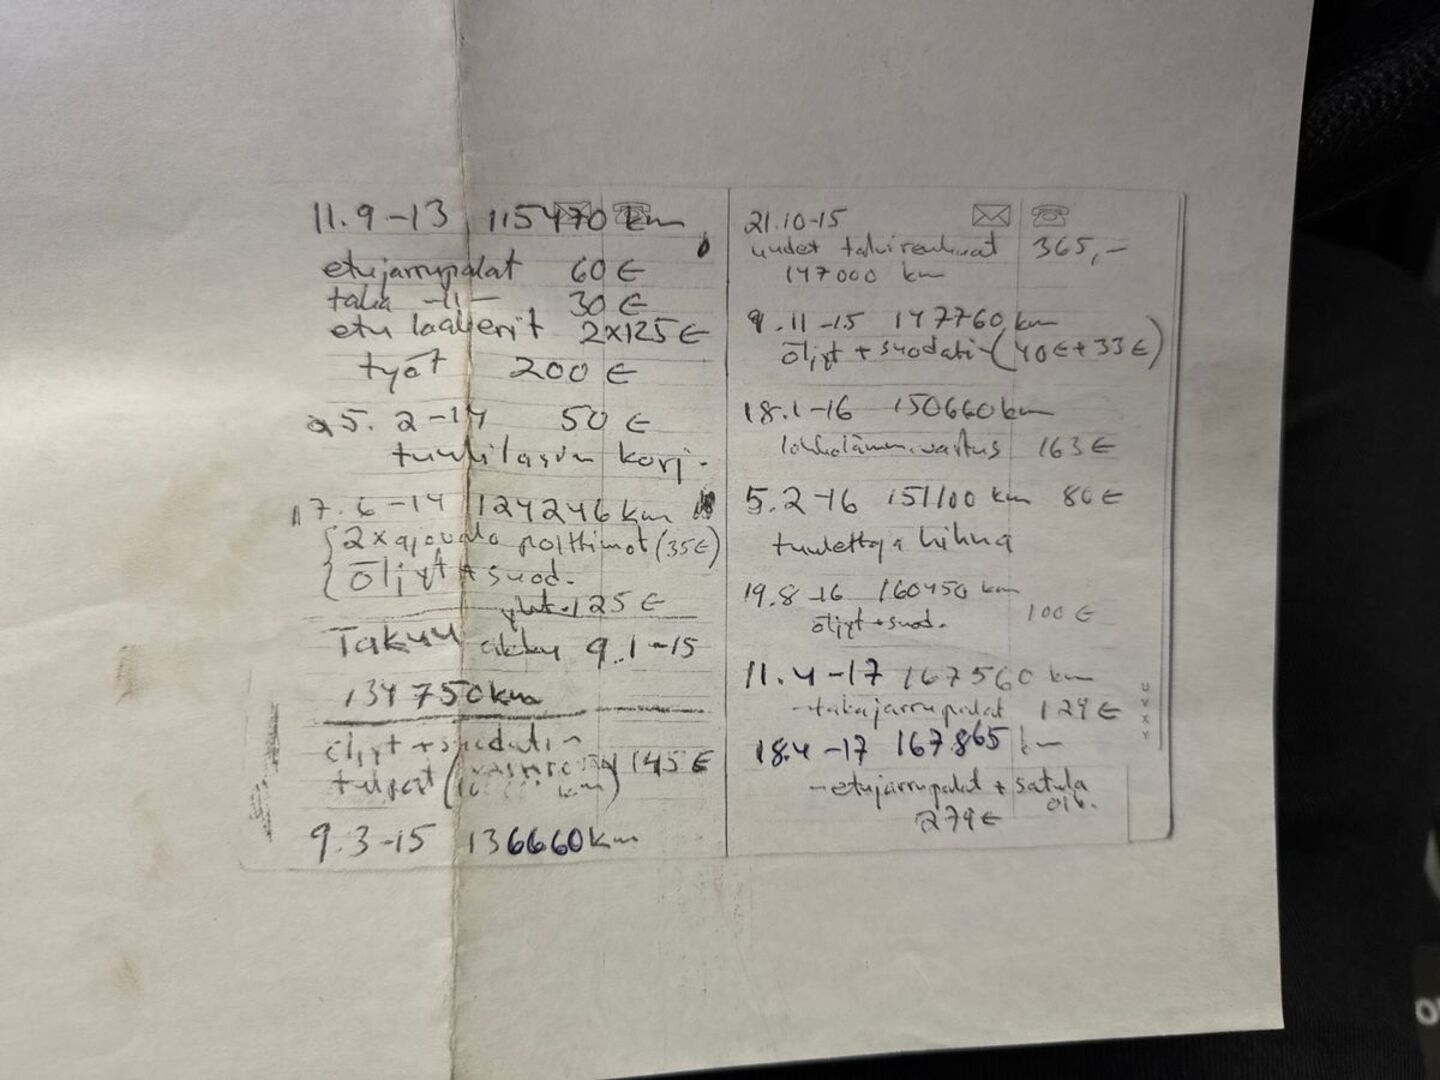 11.9-13 115470 km
etujarrupalat 60 €
taka -11- 30 €
etu laakerit 2x125 €
työt 200 €
25.2-14 50 €
tuulilasin korj.
17.6-14 124246 km
2x ajovalo polttimot (35€)
öljyt + suod.
yht. 125 €
Takuu akku 9.1-15
134750 km
öljyt + suodatin
tulpat ( km) 145 €
9.3-15 136660 km
21.10-15
uudet talvirenkaat 365,-
147000 km
9.11-15 147760 km
öljyt + suodatin (40€+33€)
18.1-16 150660 km
lohkolämm.vastus 163 €
5.2-16 151100 km 80 €
tuulettaja hihna
19.8-16 160450 km
öljyt + suod. 100 €
11.4-17 167560 km
-takajarrupalat 129 €
18.4-17 167865 km
-etujarrupalat + satula
279 €
U
V
X
Y